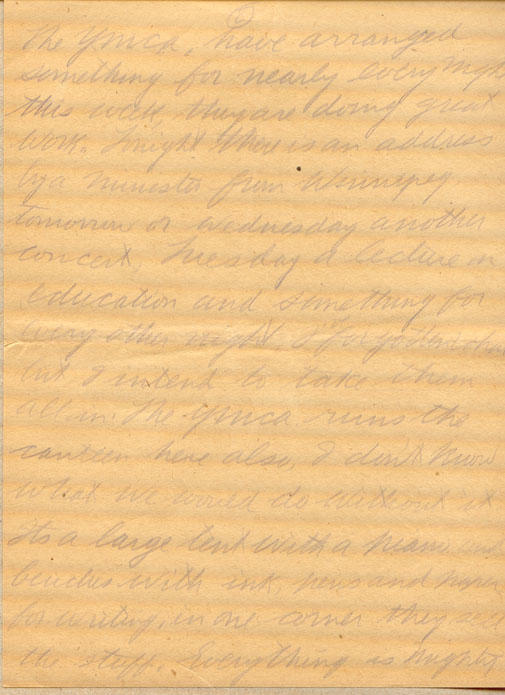 The Ymca, have arranged
something for nearly every night
this week, they are doing great
work. Tonight there is an address
by a minister from Winnipeg
tomorrow or wednesday another
concert, Tuesday a lecture on
education and something for
every other night, I forgotten what
but I intend to take them
all in. The ymca runs the
canteen here also, I don't know
what we would do without it
its a large tent with a piano and
benches with ink, pens and paper
for writing, in one corner they sell
the stuff. Everything is mighty